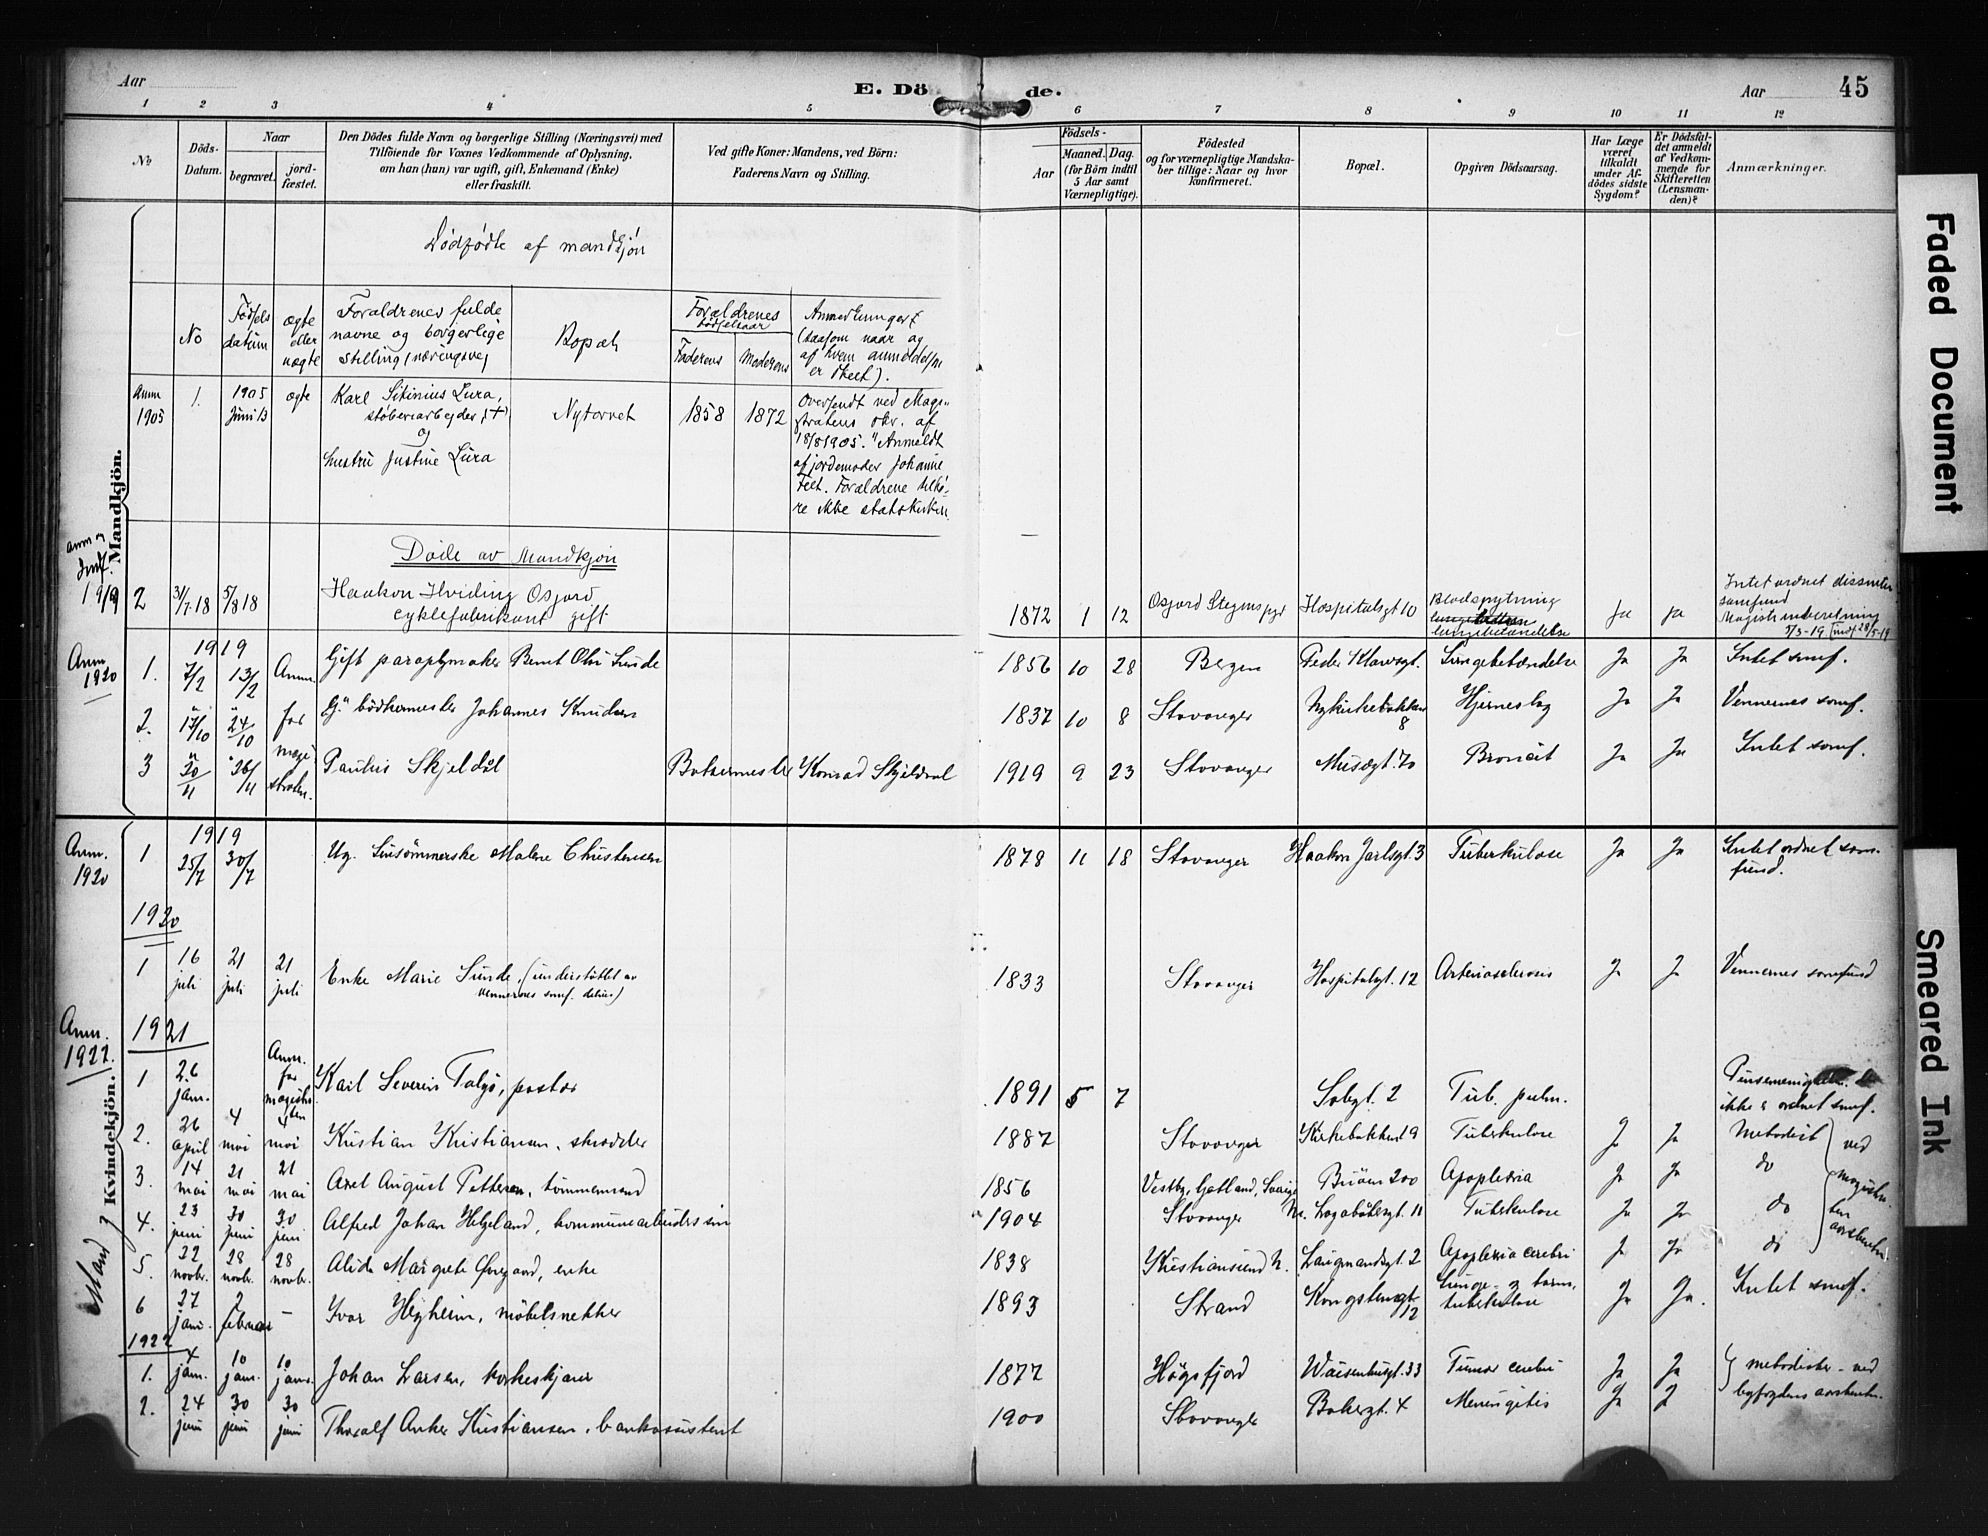 Aar
E. Dö de.
Aar
45
1 2 3 4 5 6 7 8 9 10 11 12
No
Döds-Datum.
Naar
begravet.
jord-fæstet.
Den Dödes fulde Navn og borgerlige Stilling (Næringsvei) med
Tilföiende for Voxnes Vedkommende af Oplysning,
om han (hun) var ugift, gift, Enkemand (Enke)
eller fraskilt.
Ved gifte Koner: Mandens, ved Börn:
Faderens Navn og Stilling.
Födsels-
Aar
Maaned. Dag.
(for Börn indtil
5 Aar samt
Værnepligtige).
Födested
og for værnepligtige Mandska-
ber tillige: Naar og hvor
konfirmeret.
Bopæl.
Opgiven Dödsaarsag.
Har Læge
været
tilkaldt
under Af-
dödes sidste
Sygdom?
Er Dödsfal-
det anmeldt
af Vedkom-
mende for
Skifteretten
(Lensman-
den)?
Anmærkninger.
Mandkjön.
Dødfødte af mandkjøn
No
Fødsels datum
ægte eller uægte
Forældrenes fulde
navne og borgerlige
stilling (næringsvei)
Bopæl
Forældrenes
fødselsaar
Faderens
Moderens
Anmerkninger
(saasom naar og
af hvem anmeldelsen
er skeet).
Anm 1905
1. 1905 Juni 13 ægte
Karl Sitinius Lura,
støberiarbeyder, (+)
og
hustru Justine Lura
Nytorvet 1858 1872
Oversendt ved Magi-
stratens skr. af
18/8 1905. "Anmeldt
af jordemoder Johanne
Feet. Forældrene tilhø-
re ikke statskirken.
Døde av Mandkjøn
anm og indf. 1919
2 31/7.18 5/8 18 Haakon Hviding Osjord
cyklefabrikant gift
1872 1 12 Osjord Stegen Hospitalsgt 10 Blodspytning
lungebetændelse ja ja Intet ordnet dissenter
samfund
Magistr. indberetning
5/3-19 [indf. 28/5-19
Anm 1920
1919
1. 7/2 13/2 Anm. Gift paraplymaker Bernt Olai Sunde 1856 10 28 Bergen Peder Klowsgt. Lungebetændelse Ja Ja Intet samf.
2. 17/10 24/10 for G." bødkermester Johannes Knudsen 1837 10 8 Stavanger Nykirkebakken 8 Hjerneslag Ja Ja Vennernes samf.
3 20/11 26/11 magi-straten. Paulus Skjeldal Bakermester Konrad Skjeldal 1919 9 23 Stavanger Muségt. 70 Bronkit Ja Ja Intet samf.
Anm. 1920
1919
1 25/7 30/7 Ug. Linsømmerske Malene Christensen 1878 11 18 Stavanger Haakon Jarlsgt. 3 Tuberkulose Ja Ja Intet ordnet sam-
fund.
1920
1 16 juli 21 juli 21 juli Enke Marie Sunde. (understøttet av
vennernes samf. delvis) 1833 Stavanger Hospitalsgt. 12 Arteriosclerosis J J Vennernes samfund
Anm. 1922.
Kvindekjön.
Mand
1921
1 26 jan. Anm. for magistraten Karl Severin Talgø, pastor 1891 5 7 Solvgt. 2 Tub. pulm. Pinsemenigheten
ikke i ordnet samf.
2. 26 april 4 mai 4 mai Kristian Kristiansen, skrædder 1887 Stavanger Kirkebakken 19 Tuberkulose J Ja Metodist
3. 14 mai 21 mai 21 mai Axel August Pettersen, tømmermand 1856 Vestby, Gøtland, Sverige Bruen 200 Apoplexia J Ja do
4. 23 juni 30 juni 30 juni Alfred Johan Helgeland, kommunearbeiders søn 1904 Stavanger Ne. Lagabøtersgt. 11 Tuberkulose Ja Ja do
5. 22 novbr. 28 novbr. 28 novbr. Alida Margrete Øvregaard, enke 1838 Kristiansund N. Laugmandsgt. 2 Apoplexia cerebri J Ja do
ved magistraten aarsberetn.
6 27 jan. 2 februar — Ivar Heyheim, møbelsnekker 1893 Strand Kongstensgt. 12 Lunge- og tarm-
tuberkulose Ja Ja. Intet samf.
1922
1. 4 jan. 10 jan. 10 jan. Johan Larsen, korkeskjærer 1877 Høgsfjord Waisenhusgt. 33 Tumor cerebri Ja Ja metodister - ved
byfogdens aarsberetn.
2. 24 juni 30 juni 30 juni Thoralf Anker Kristiansen, bankassistent 1900 Stavanger Bakergt. 4 Meningitis Ja J
Faded Document
Smeared Ink